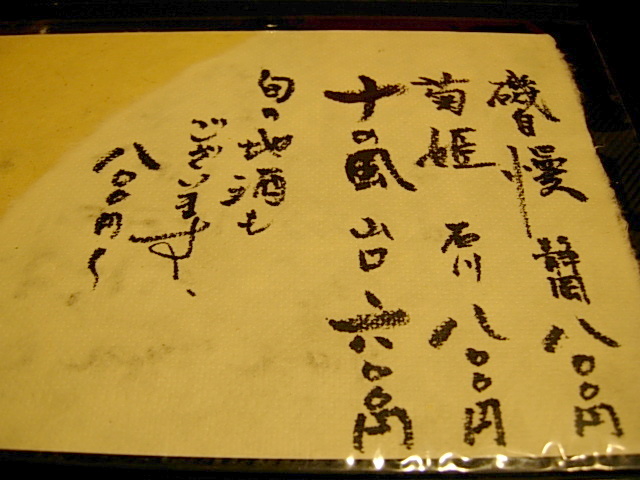 磯自慢 静岡 八〇〇円
菊姫 石川 八〇〇円
十の風 山口 六〇〇円
旬の地酒も
ございます、
八〇〇円〜